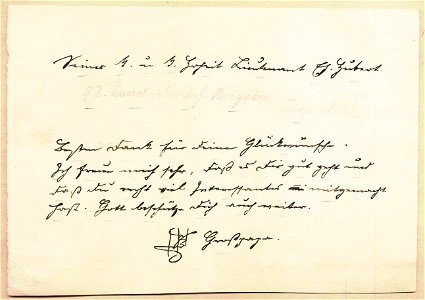 Seiner K. u. K. Hoheit Lieutnant Eh. Hubert
92. Landsch. Inf. Brigade
Besten Dank für deine Glückwünsche.
Ich freue mich sehr, daß es Dir gut geht und
daß Du recht viel Interessants mitgemacht
hast. Gott beschütze Dich auch weiter.
Großpapa.